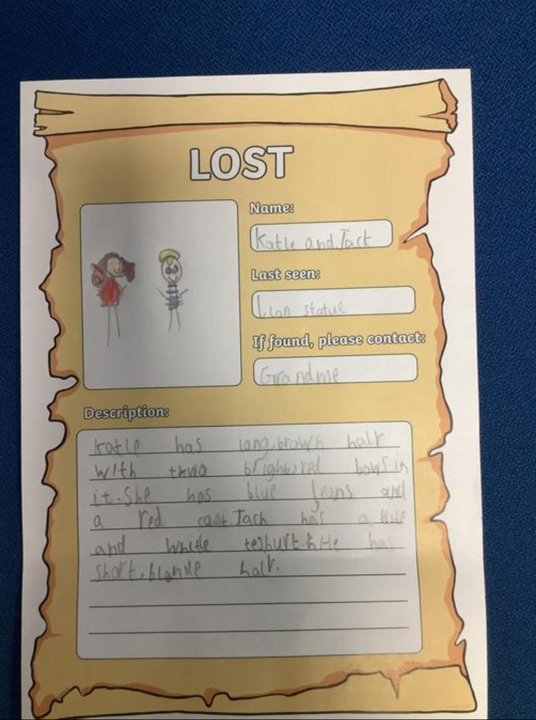 LOST
Name:
Katie and Jack
Last seen:
Lion statue
If found, please contact:
Grandme
Description:
Katie has long, brown hair
with two bright, red bows in
it. She has blue jeans and
a red coat. Jack has a
and white He has
short, blonde hair.